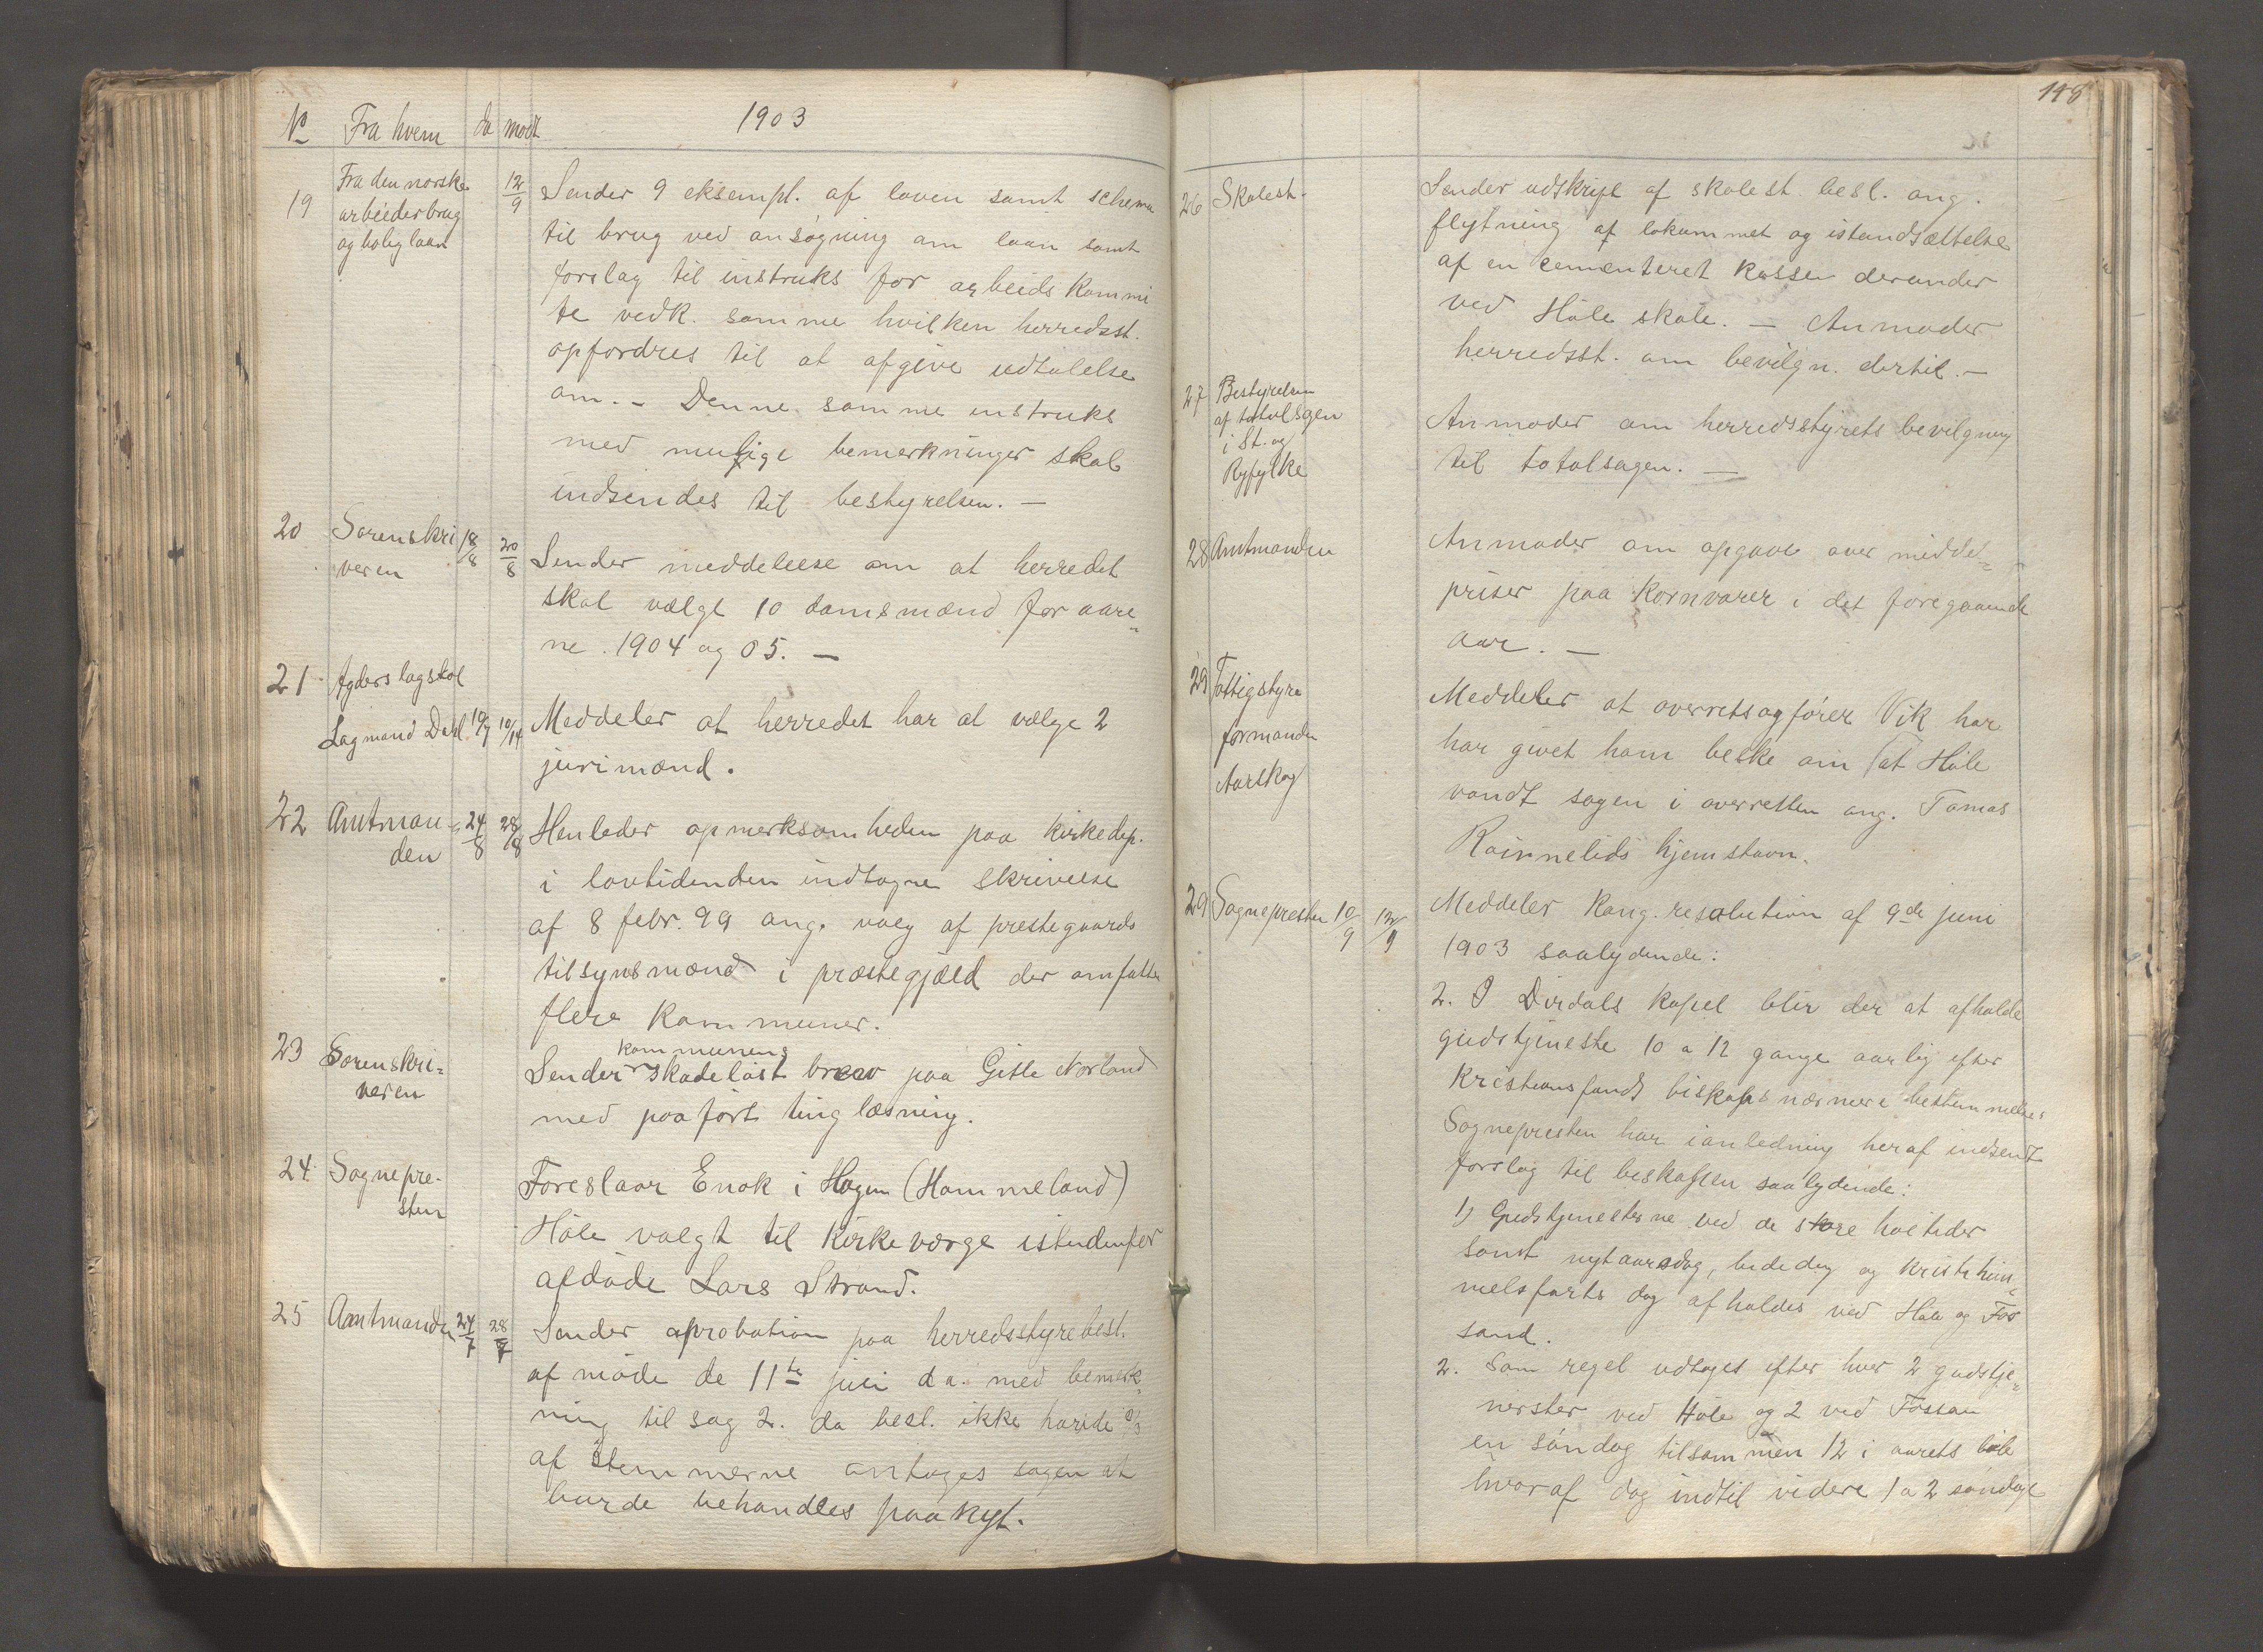 No Fra hvem da modt 1903
19 Fra den norske arbeiderbrug og bolig laan 12/9 Sender 9 eksempl. af loven samt schema
til brug ved ansøgning om laan samt
forslag til instruks for arbeids kommi
te vedk. samme hvilken herredsst.
opfordres til at afgive udtalelse
om. - Denne samme instruks
med mulige bemerkninger skal
indsendes til bestyrelsen. -
20 Sorenskri 18/8 20/8 Sender meddelelse om at herredet
veren skal vælge 10 domsmænd for aare=
ne 1904 og 05. -
21 Agders lagstol
Lagmand Dahl 10/7 10/14 Meddeler at herredet har at vælge 2
jurimænd.
22 Amtman- 24/8 28/8 Henleder opmerksomheden paa kirkedep.
den i lovtidenden indtagne skrivelse
af 8 febr. 99 ang. valg af prestegaards
tilsynsmænd i præstegjæld der omfatter
flere kommuner.
23 Sorenskri= Sender kommunens skadeløst brev paa Gitle Norland
veren med paaført tinglæsning.
24 Sognepre- Foreslaar Enok i Hagen (Hommeland)
sten Høle valgt til kirkeværge istedenfor
afdøde Lars Strand.
25 Amtmanden 24/7 28/7 Sender aprobation paa herredsstyrebesl.
af møde de 11te juli d a. med bemerk=
ning til sag 2. da besl. ikke havde 2/3
af stemmerne antages sagen at
burde behandles paa nyt.
148
26 Skolest. Sender udskript af skolest. besl. ang.
flytning af lokummet og istandsættelse
af en cementeret kasse derunder
ved Høle skole. - Anmoder
herredsst. om bevilgn. dertil. -
27 Bestyrelsen
af totalsagen Anmoder om herredsstyrets bevilgning
i St. og til totalsagen. -
Ryfylke
28 Amtmanden Anmoder om opgave over middel=
priser paa kornvarer i det foregaaende
aar. -
29 Fattigstyre Meddeler at overretsagfører Vik har
formanden har givet ham beske om at Høle
Aarskog vandt sagen i overretten ang. Tomas
hjemstavn.
29 Sognepresten 10/9 12/9 Meddeler kong. resolution af 9de juni
1903 saalydende:
2. I Dirdals kapel blir der at afholde
gudstjeneste 10 a 12 gange aarlig efter
Kristiansands biskops nærmere bestemmelse
Sognepresten har i anledning heraf indsendt
forslag til biskoppen saalydende:
1) Gudstjenesterne ved de store høitider
samt nytaarsdag, bededag og kristi him=
melsfarts dag afholdes ved Høle og Fos
sand.
2. Som regel udtages efter hver 2 gudstje=
nerster ved Høle og 2 ved Fossan
en søndag tilsammen 12 i aarets løb
hvoraf dog indtil videre 1 a 2 søndage